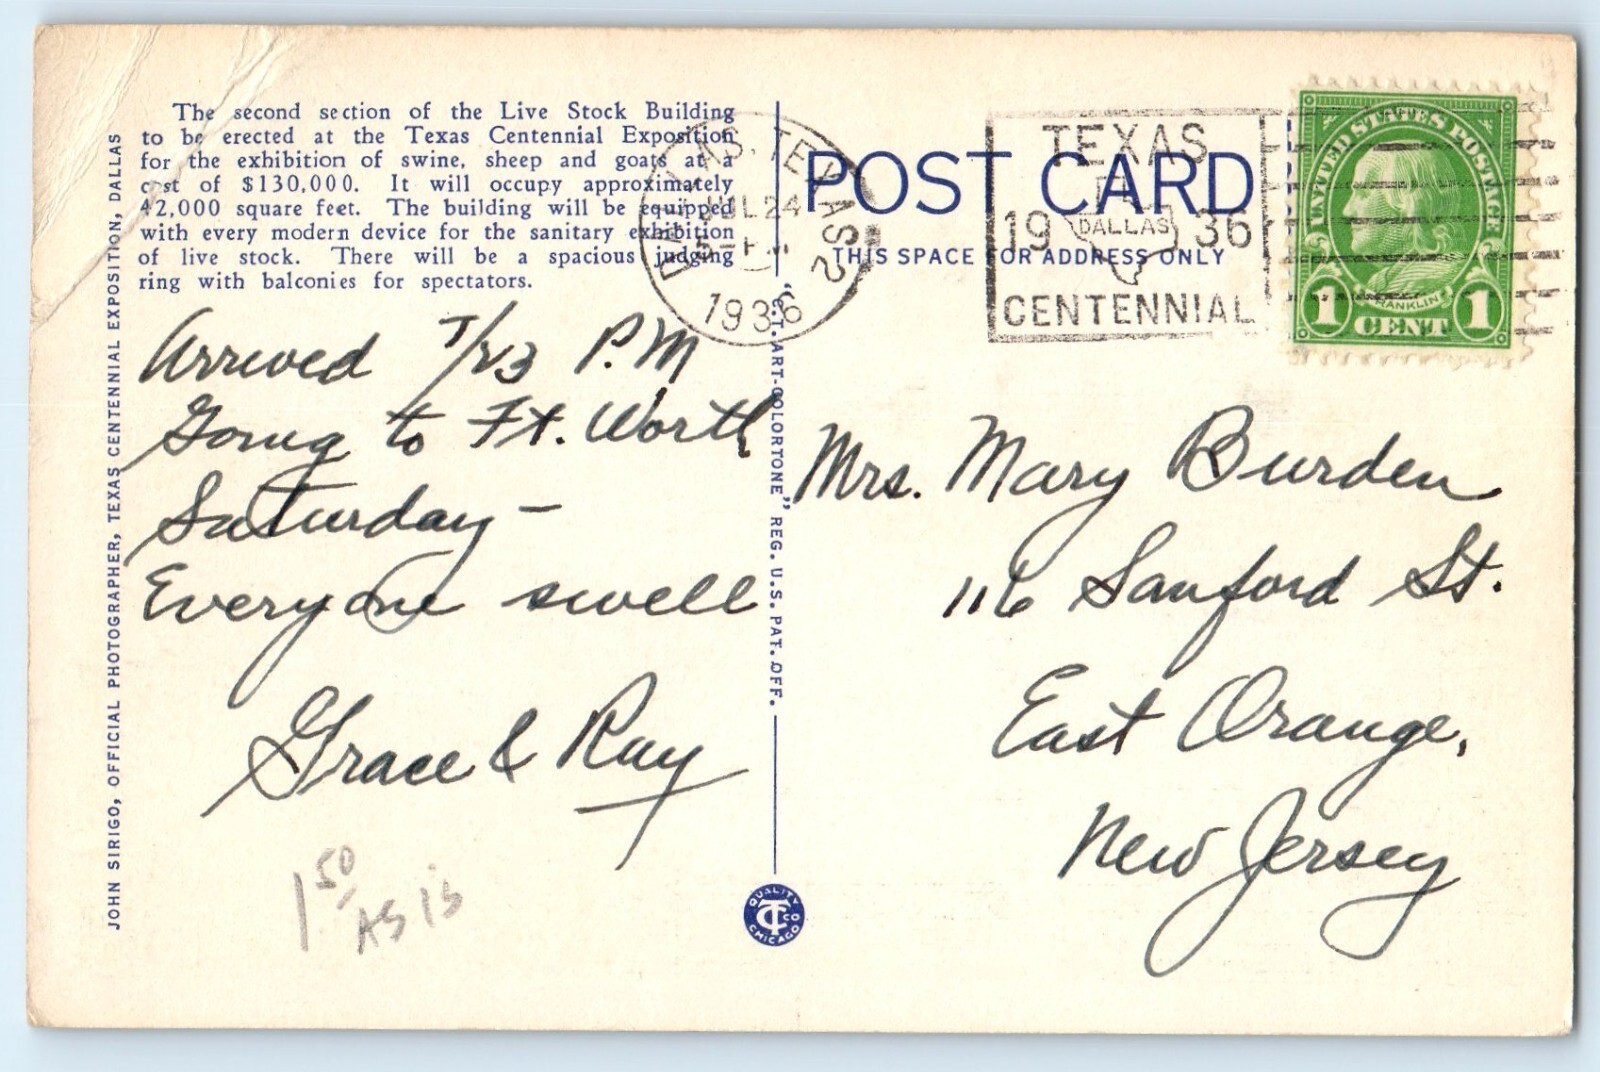 The second section of the Live Stock Building
to be erected at the Texas Centennial Exposition
for the exhibition of swine, sheep and goats at a
cost of $130,000. It will occupy approximately
42,000 square feet. The building will be equipped
with every modern device for the sanitary exhibition
of live stock. There will be a spacious judging
ring with balconies for spectators.
JOHN SIRIGO, OFFICIAL PHOTOGRAPHER, TEXAS CENTENNIAL EXPOSITION, DALLAS
Arrived 7/23 P.M
Going to Ft. Worth
Saturday –
Everyone swell
Grace & Ray
1 50
AS is
"C.T. ART-COLORTONE" REG. U.S. PAT. OFF.
QUALITY
CT CO
CHICAGO
DALLAS, TEXAS 2
JUL 24
5 – PM
1936
POST CARD
THIS SPACE FOR ADDRESS ONLY
TEXAS
19 DALLAS 36
CENTENNIAL
UNITED STATES POSTAGE
FRANKLIN
1 CENT 1
Mrs. Mary Burden
116 Sanford St.
East Orange,
New Jersey